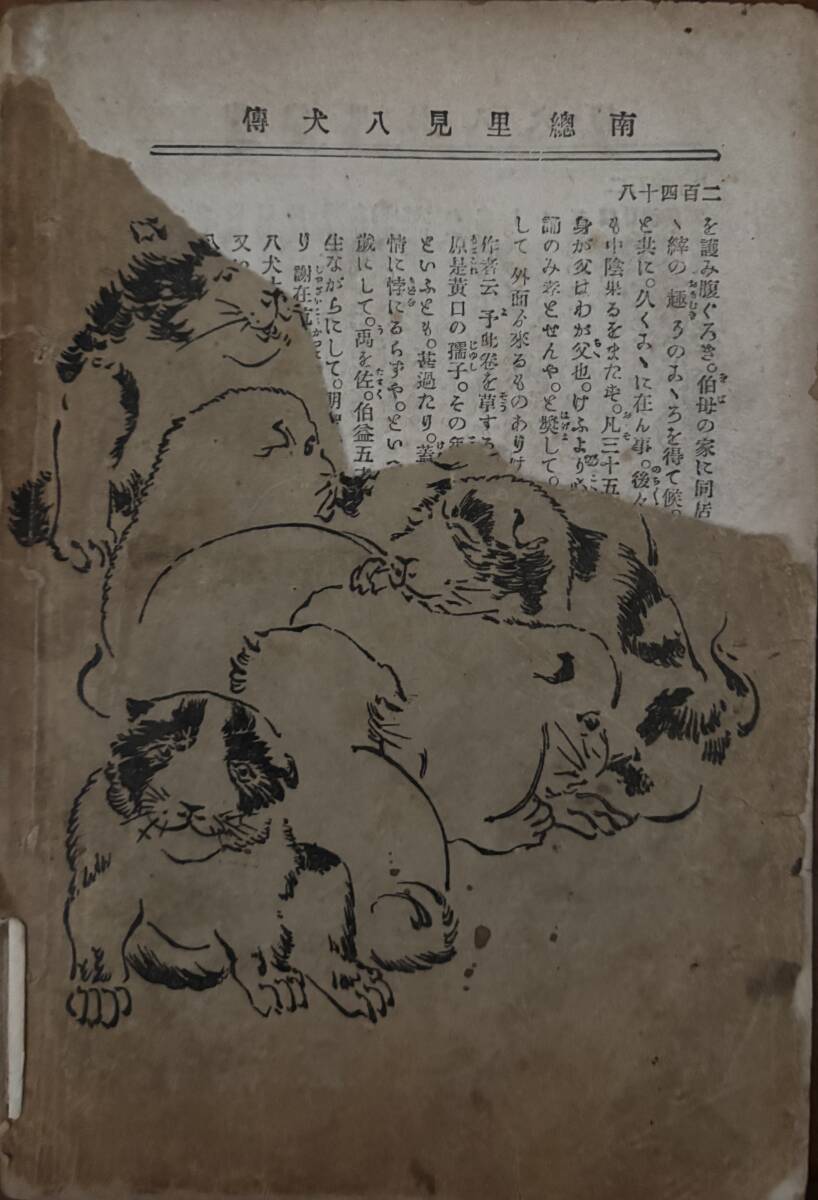 南總里見八犬傳
二百四十八
を護み腹ぐろき。伯母の家に同居
と共に。久くこゝに在ん事。後々
も中陰果るをまたず。凡三十五
身が父はわが父也。けふより
誦のみ業とせんや。と奬して。
して外面より來るものありけ
作者云予此卷を草する
原是黄口の孺子。その年
といふとも。甚過たり。蓋
情に悖にるらずや。といへ
歳にして。禹を佐。伯益五才
生ながらにして。明
り 謝在
八犬士
又い